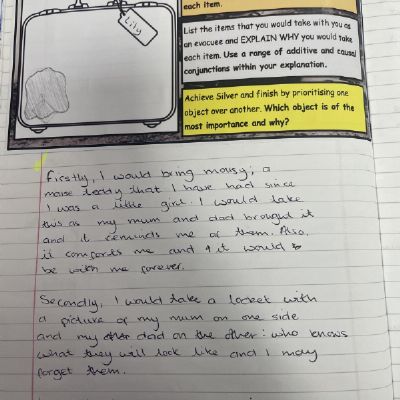 each item.
Lily
List the items that you would take with you as
an evacuee and EXPLAIN WHY you would take
each item. Use a range of additive and causal
conjunctions within your explanation.
Achieve Silver and finish by prioritising one
object over another. Which object is of the
most importance and why?
Firstly, I would bring mousy; a
mouse teddy that I have had since
I was a little girl. I would take
this as my mum and dad brought it
and it reminds me of them. Also,
it comforts me and it would
be with me forever.
Secondly, I would take a locket with
a picture of my mum on one side
and my dad on the other: who knows
what they will look like and I may
forget them.